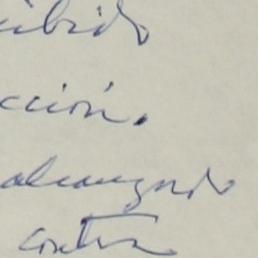 cibido
cción.
alcanzado
contra